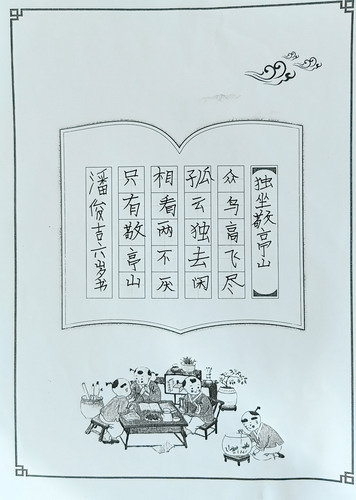 独坐敬亭山
众鸟高飞尽
孤云独去闲
相看两不厌
只有敬亭山
潘俊吉六岁书